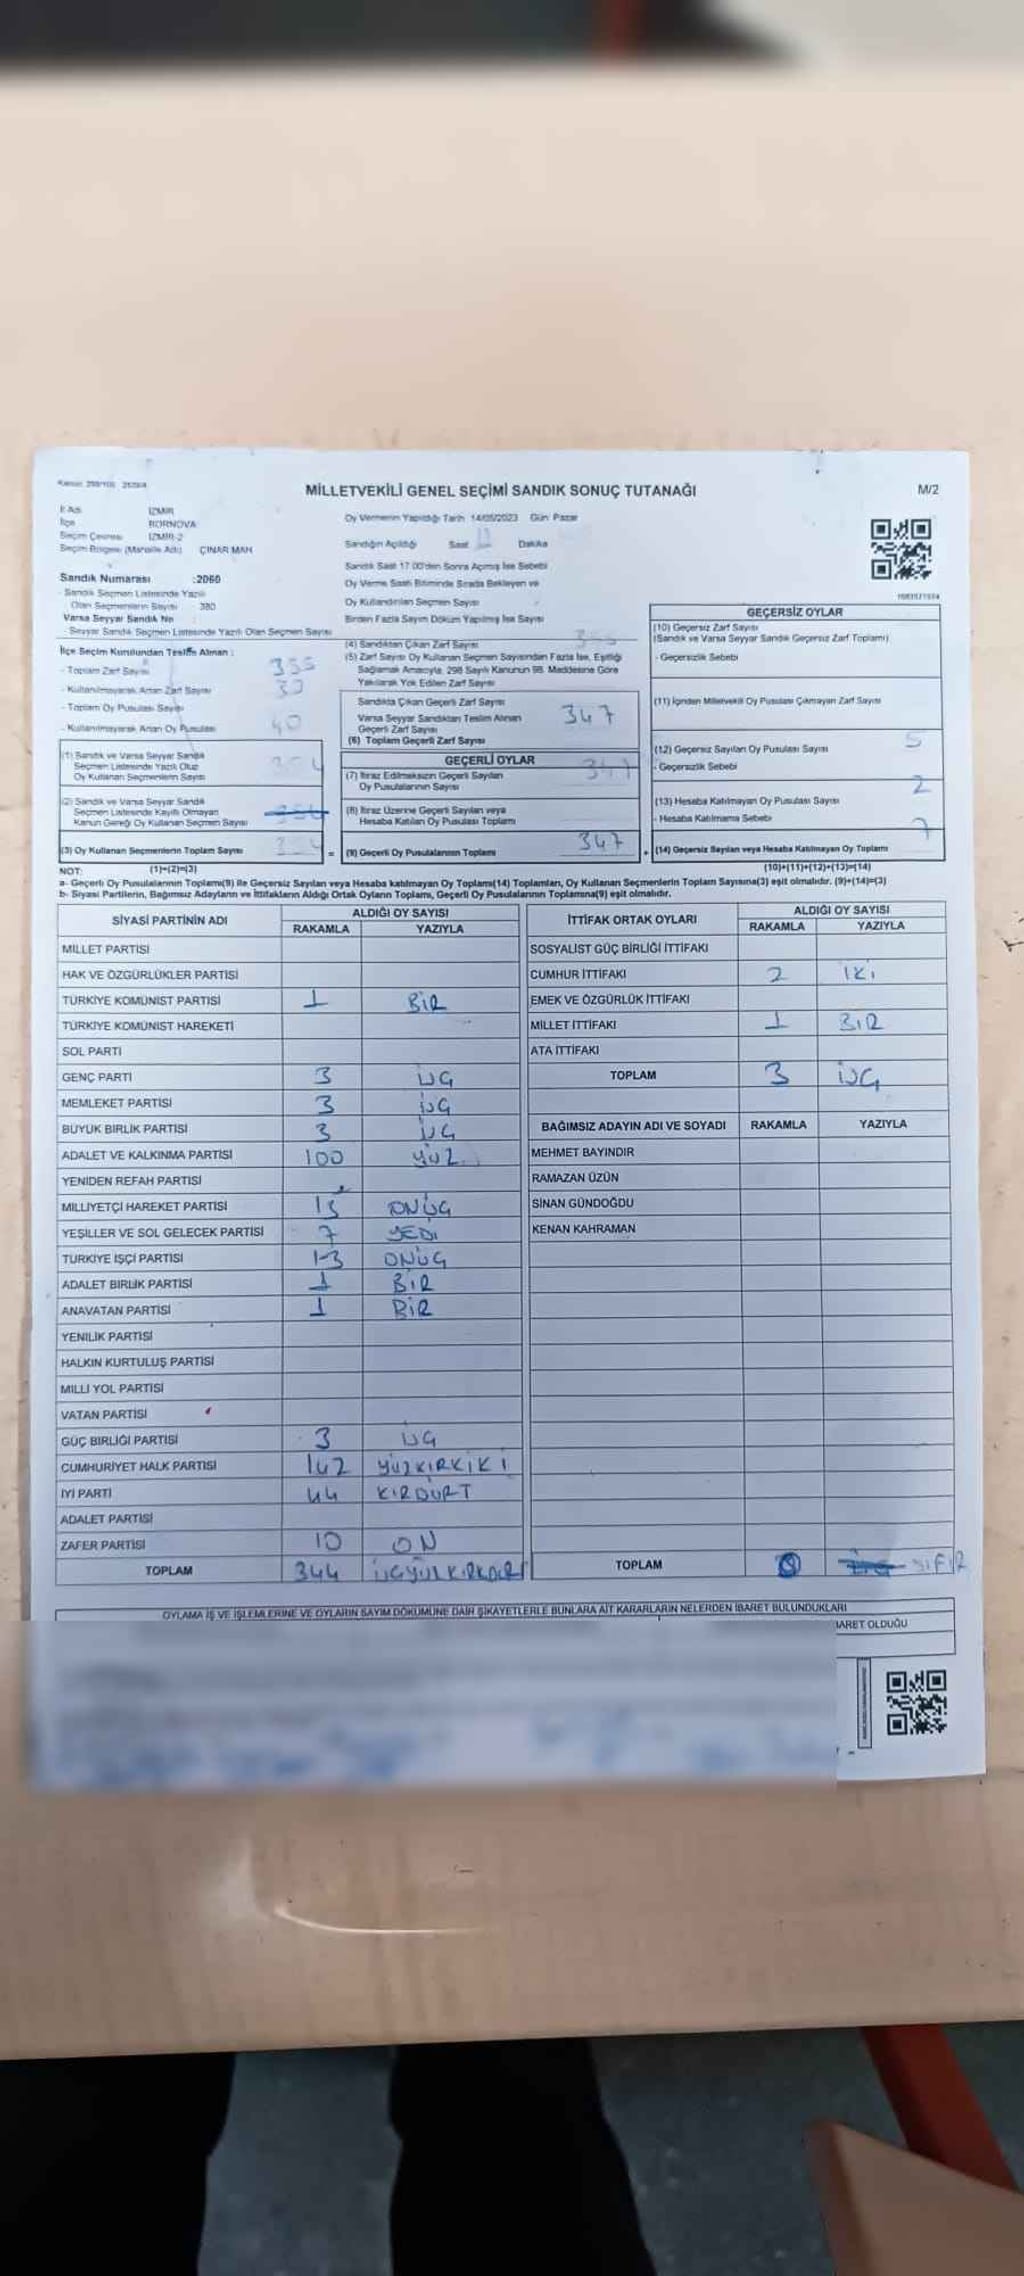 MİLLETVEKİLİ GENEL SEÇİMİ SANDIK SONUÇ TUTANAĞI
M/2
İl Adı İZMİR
İlçe BORNOVA
Seçim Çevresi İZMİR-2
Seçim Bölgesi (Mahalle Adı) ÇINAR MAH
Sandık Numarası :2060
- Sandık Seçmen Listesinde Yazılı
Olan Seçmenlerin Sayısı 380
Varsa Seyyar Sandık No
- Seyyar Sandık Seçmen Listesinde Yazılı Olan Seçmen Sayısı
İlçe Seçim Kurulundan Teslim Alınan :
- Toplam Zarf Sayısı 355
- Kullanılmayarak Artan Zarf Sayısı
- Toplam Oy Pusulası Sayısı
- Kullanılmayarak Artan Oy Pusulası 40
(1) Sandık ve Varsa Seyyar Sandık
Seçmen Listesinde Yazılı Olup
Oy Kullanan Seçmenlerin Sayısı
(2) Sandık ve Varsa Seyyar Sandık
Seçmen Listesinde Kayıtlı Olmayan
Kanun Gereği Oy Kullanan Seçmen Sayısı
(3) Oy Kullanan Seçmenlerin Toplam Sayısı
Oy Vermenin Yapıldığı Tarih 14/05/2023 Gün: Pazar
Sandığın Açıldığı Saat Dakika
Sandık Saat 17.00'den Sonra Açılmış İse Sebebi
Oy Verme Saati Bitiminde Sırada Bekleyen ve
Oy Kullandırılan Seçmen Sayısı
Birden Fazla Sayım Döküm Yapılmış İse Sayısı
(4) Sandıktan Çıkan Zarf Sayısı 355
(5) Zarf Sayısı Oy Kullanan Seçmen Sayısından Fazla İse, Eşitliği
Sağlamak Amacıyla, 298 Sayılı Kanunun 98. Maddesine Göre
Yakılarak Yok Edilen Zarf Sayısı
Sandıkta Çıkan Geçerli Zarf Sayısı
Varsa Seyyar Sandıktan Teslim Alınan
Geçerli Zarf Sayısı
(6) Toplam Geçerli Zarf Sayısı 347
GEÇERLİ OYLAR
(7) İtiraz Edilmeksizin Geçerli Sayılan
Oy Pusulalarının Sayısı 347
(8) İtiraz Üzerine Geçerli Sayılan veya
Hesaba Katılan Oy Pusulası Toplamı
= (9) Geçerli Oy Pusulalarının Toplamı 347
GEÇERSİZ OYLAR
(10) Geçersiz Zarf Sayısı
(Sandık ve Varsa Seyyar Sandık Geçersiz Zarf Toplamı)
- Geçersizlik Sebebi
(11) İçinden Milletvekili Oy Pusulası Çıkmayan Zarf Sayısı
(12) Geçersiz Sayılan Oy Pusulası Sayısı 5
- Geçersizlik Sebebi
(13) Hesaba Katılmayan Oy Pusulası Sayısı 2
- Hesaba Katılmama Sebebi
+ (14) Geçersiz Sayılan veya Hesaba Katılmayan Oy Toplamı 7
NOT: (1)+(2)=(3) (10)+(11)+(12)+(13)=(14)
a- Geçerli Oy Pusulalarının Toplamı(9) ile Geçersiz Sayılan veya Hesaba katılmayan Oy Toplamı(14) Toplamları, Oy Kullanan Seçmenlerin Toplam Sayısına(3) eşit olmalıdır. (9)+(14)=(3)
b- Siyasi Partilerin, Bağımsız Adayların ve İttifakların Aldığı Ortak Oyların Toplamı, Geçerli Oy Pusulalarının Toplamına(9) eşit olmalıdır.
SİYASİ PARTİNİN ADI ALDIĞI OY SAYISI
RAKAMLA YAZIYLA
MİLLET PARTİSİ
HAK VE ÖZGÜRLÜKLER PARTİSİ
TÜRKİYE KOMÜNİST PARTİSİ 1 BİR
TÜRKİYE KOMÜNİST HAREKETİ
SOL PARTİ
GENÇ PARTİ 3 ÜÇ
MEMLEKET PARTİSİ 3 ÜÇ
BÜYÜK BİRLİK PARTİSİ 3 ÜÇ
ADALET VE KALKINMA PARTİSİ 100 YÜZ
YENİDEN REFAH PARTİSİ
MİLLİYETÇİ HAREKET PARTİSİ 13 ONÜÇ
YEŞİLLER VE SOL GELECEK PARTİSİ 7 YEDİ
TÜRKİYE İŞÇİ PARTİSİ 13 ONÜÇ
ADALET BİRLİK PARTİSİ 1 BİR
ANAVATAN PARTİSİ 1 BİR
YENİLİK PARTİSİ
HALKIN KURTULUŞ PARTİSİ
MİLLİ YOL PARTİSİ
VATAN PARTİSİ
GÜÇ BİRLİĞİ PARTİSİ 3 ÜÇ
CUMHURİYET HALK PARTİSİ 142 YÜZKIRKİKİ
İYİ PARTİ 44 KIRDÖRT
ADALET PARTİSİ
ZAFER PARTİSİ 10 ON
TOPLAM 344
İTTİFAK ORTAK OYLARI ALDIĞI OY SAYISI
RAKAMLA YAZIYLA
SOSYALİST GÜÇ BİRLİĞİ İTTİFAKI
CUMHUR İTTİFAKI 2 İKİ
EMEK VE ÖZGÜRLÜK İTTİFAKI
MİLLET İTTİFAKI 1 BİR
ATA İTTİFAKI
TOPLAM 3 ÜÇ
BAĞIMSIZ ADAYIN ADI VE SOYADI RAKAMLA YAZIYLA
MEHMET BAYINDIR
RAMAZAN ÜZÜN
SİNAN GÜNDOĞDU
KENAN KAHRAMAN
TOPLAM SIFIR
OYLAMA İŞ VE İŞLEMLERİNE VE OYLARIN SAYIM DÖKÜMÜNE DAİR ŞİKAYETLERLE BUNLARA AİT KARARLARIN NELERDEN İBARET BULUNDUKLARI
İBARET OLDUĞU